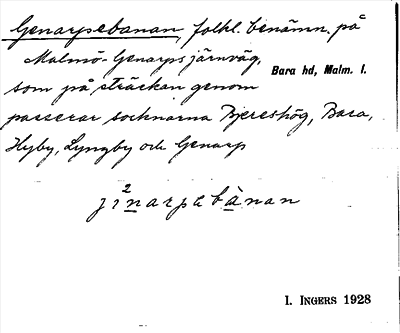 Genarpsbanan, folkl. benämn. på
Malmö-Genarps järnväg,
Bara hd, Malm. l.
som på sträckan genom
passerar socknarna Bjereshög, Bara,
Hyby, Lyngby och Genarp
I. INGERS 1928